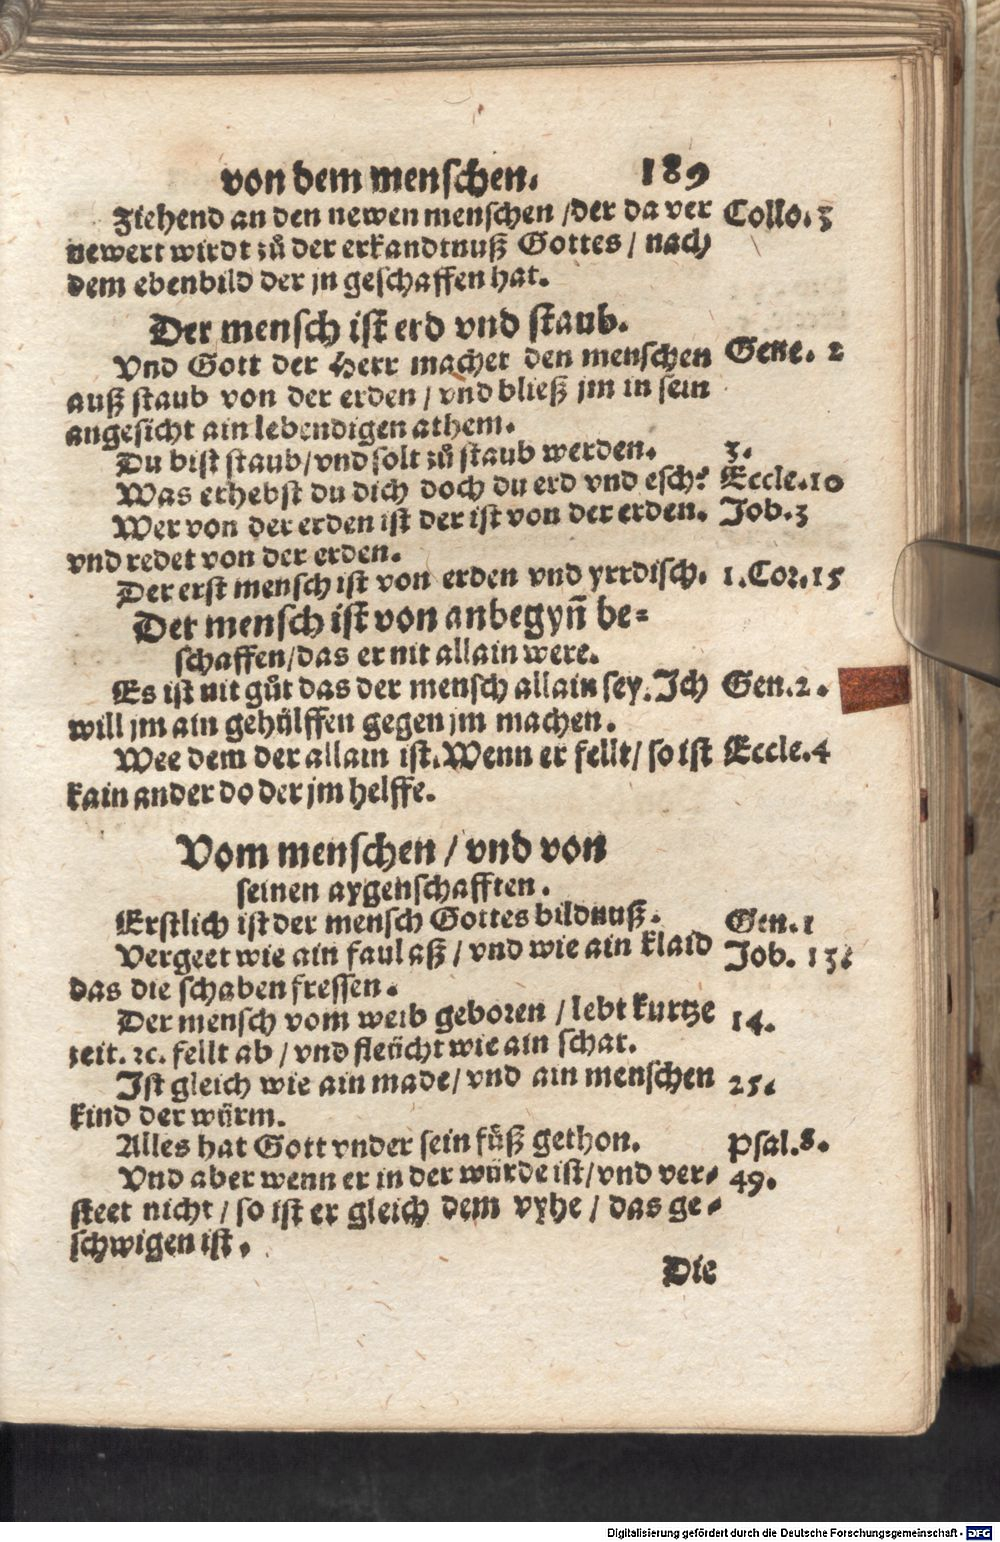 von dem menschen. 189
Ziehend an den newen menschen / der da ver Collo. 3
newert wirdt zů der erkandtnuß Gottes / nach
dem ebenbild der jn geschaffen hat.
Der mensch ist erd vnd staub.
Vnd Gott der Herr machet den menschen Gene. 2
auß staub von der erden / vnd bließ jm in sein
angesicht ain lebendigen athem.
Du bist staub / vnd solt zů staub werden. 3.
Was erhebst du dich doch du erd vnd esch? Eccle. 10
Wer von der erden ist der ist von der erden. Job. 3
vnd redet von der erden.
Der erst mensch ist von erden vnd yrrdisch. 1. Cor. 15
Der mensch ist von anbegyñ be=
schaffen / das er nit allain were.
Es ist nit gůt das der mensch allain sey. Ich Gen. 2.
will jm ain gehülffen gegen jm machen.
Wee dem der allain ist. Wenn er fellt / so ist Eccle. 4
kain ander do der jm helffe.
Vom menschen / vnd von
seinen aygenschafften.
Erstlich ist der mensch Gottes bildnuß. Gen. 1
Vergeet wie ain faul aß / vnd wie ain klaid Job. 13.
das die schaben fressen.
Der mensch vom weib geboren / lebt kurtze 14.
zeit. ꝛc. fellt ab / vnd fleücht wie ain schat.
Ist gleich wie ain made / vnd ain menschen 25.
kind der würm.
Alles hat Gott vnder sein füß gethon. Psal. 8.
Vnd aber wenn er in der würde ist / vnd ver= 49.
steet nicht / so ist er gleich dem vyhe / das ge=
schwigen ist.
Die
Digitalisierung gefördert durch die Deutsche Forschungsgemeinschaft - DFG